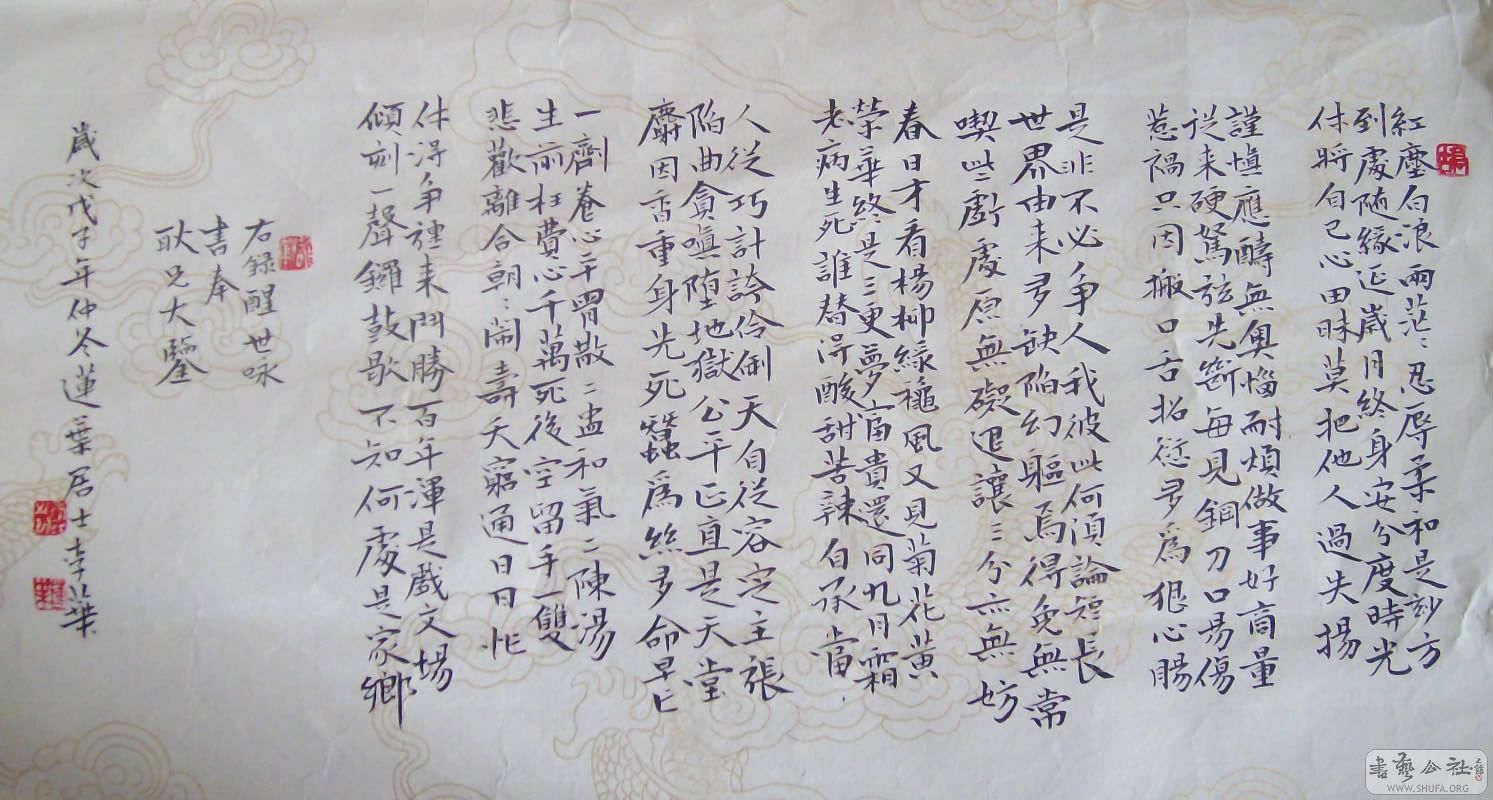 紅塵白浪兩茫茫忍辱柔和是妙方
到處隨緣延歲月終身安分度時光
休將自己心田昧莫把他人過失揚
謹慎應酬無奧惱耐煩做事好商量
從來硬弩弦先斷每見鋼刀口易傷
惹禍只因搬口舌招愆多為狠心腸
是非不必爭人我彼此何須論短長
世界由來多缺陷幻軀焉得免無常
喫些虧處原無礙退讓三分亦無妨
春日才看楊柳緑穐風又見菊花黃
榮華終是三更夢富貴還同九月霜
老病生死誰替得酸甜苦辣自承當
人從巧計誇伶俐天自從容定主張
陷曲貪嗔墮地獄公平正直是天堂
麝因香重身先死蠶為絲多命早亡
一劑養心平胃散二盅和氣二陳湯
生前枉費心千萬死後空留手一雙
悲歡離合朝〻鬧壽夭窮通日日忙
休得爭強來鬥勝百年渾是戲文場
傾刻一聲鑼鼓歇不知何處是家鄉
右錄醒世咏
書奉
耿兄大鑒
歲次戊子年仲冬蓮葉居士李華
書藝公社
WWW.SHUFA.ORG